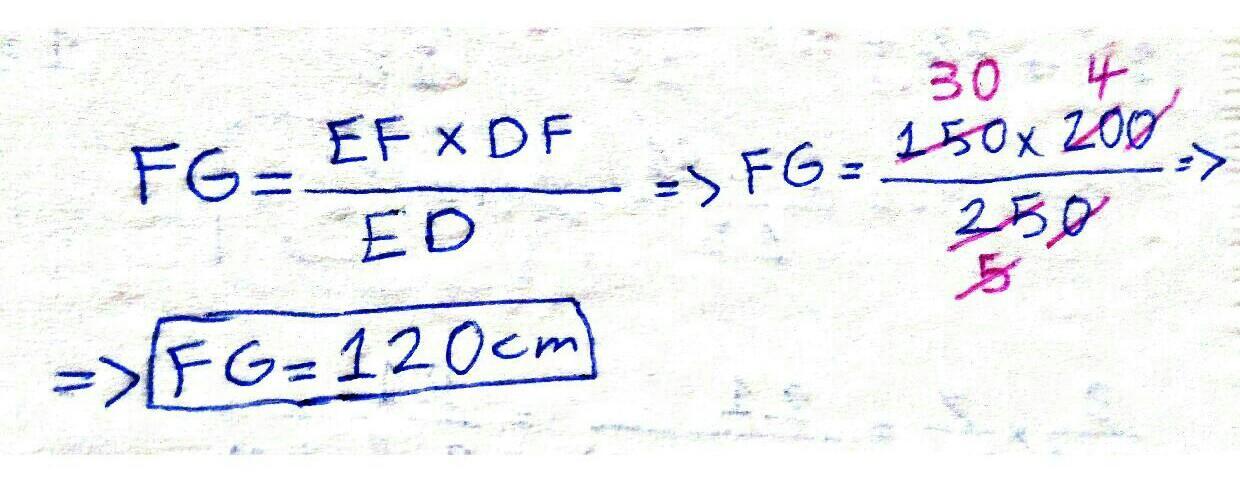 30 4
FG = EF × DF / ED => FG = 150 × 200 / 250 =>
5
=> FG = 120cm